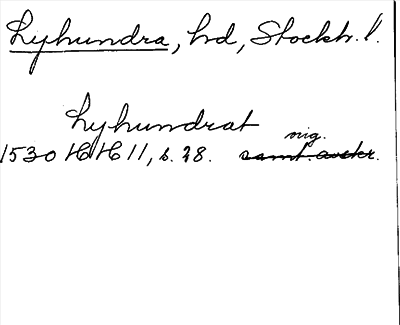 Lyhundra, hd, Stockh. l.
Lyhundrat
nig.
1530 HH 11, s. 28. samt. avskr.